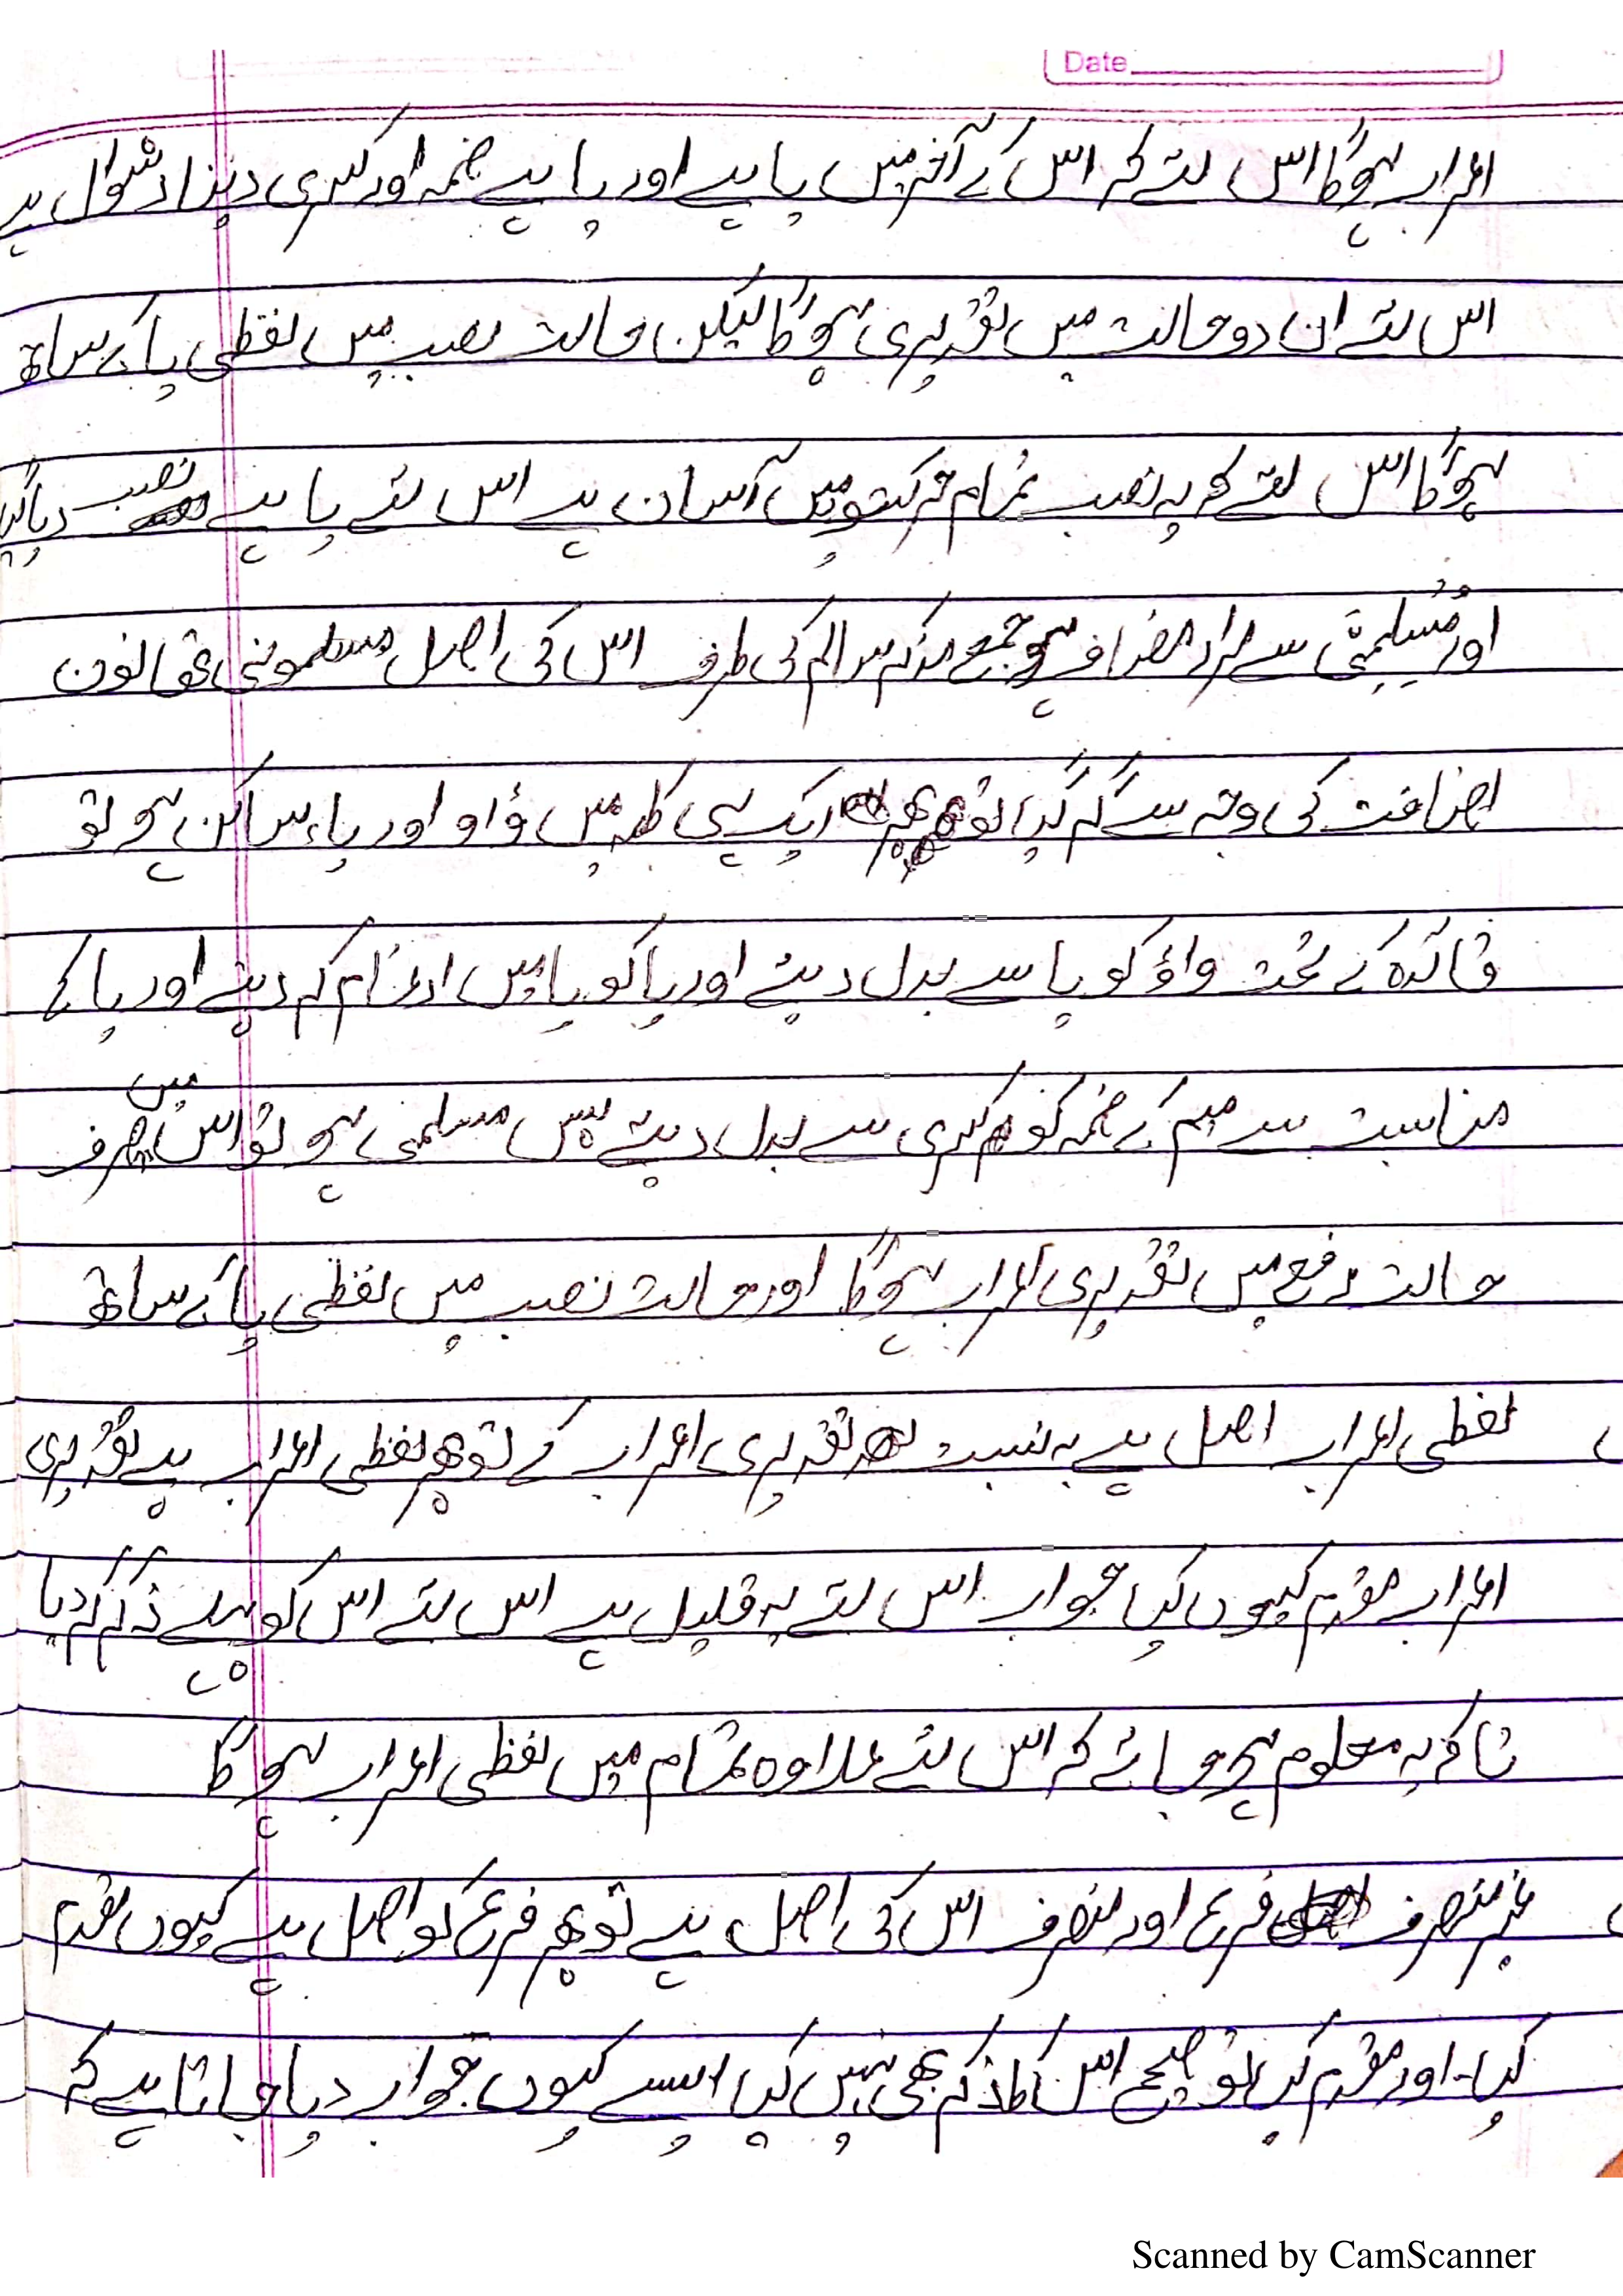 Date
اعراب ہوگا اس لئے کہ اس کے آخر میں یا ہے اور یا پے ضمہ اور کسری دینا دشوال ہے
اس لئے ان دو حالت میں تقدیری ہوگا لیکن حالت نصب میں لفظی یا کے ساتھ
ہوگا اس لئے کہ یہ نصب تمام حرکتوں میں آسان ہے اس لئے یا پے نصب دیا گیا
اور مُسلِمِیَّ سے مراد مضاف ہو جمع مذکر سالم کی طرف اس کی اصل مسلمونی تھا نون
اضافت کی وجہ سے گر گیا تو پھر ایک ہی کلمہ میں ؤاو اور یاء ساکن ہو تو
قائدہ کے تحت واؤ کو یا سے بدل دیئے اور یا کو یا میں ادغام کر دیئے اور یا کے
مناسبت سے میم کے ضمہ کو کسری سے بدل دیئے پس مسلمی ہو تو اس میں صرف
حالت رفع میں تقدیری اعراب ہوگا اور حالت نصب میں لفظی یا کے ساتھ
لفظی اعراب اصل ہے بہ نسبت تقدیری اعراب کے تو پھر لفظی اعراب پے تقدیری
اعراب مقدم کیوں کیا جواب اس لئے یہ قلیل ہے اس لئے اس کو پہلے ذکر کر دیا
تاکہ یہ معلوم ہو جائے کہ اس لئے علاوہ تمام میں لفظی اعراب ہوگا
غیر منصرف فرع اور منصرف اس کی اصل ہے تو پھر فرع کو اصل پے کیوں مقدم
کیا۔ اور مقدم کیا تو صحیح اس کا ذکر بھی نہیں کیا ایسے کیوں جواب دیا جاتا ہے کہ
Scanned by CamScanner